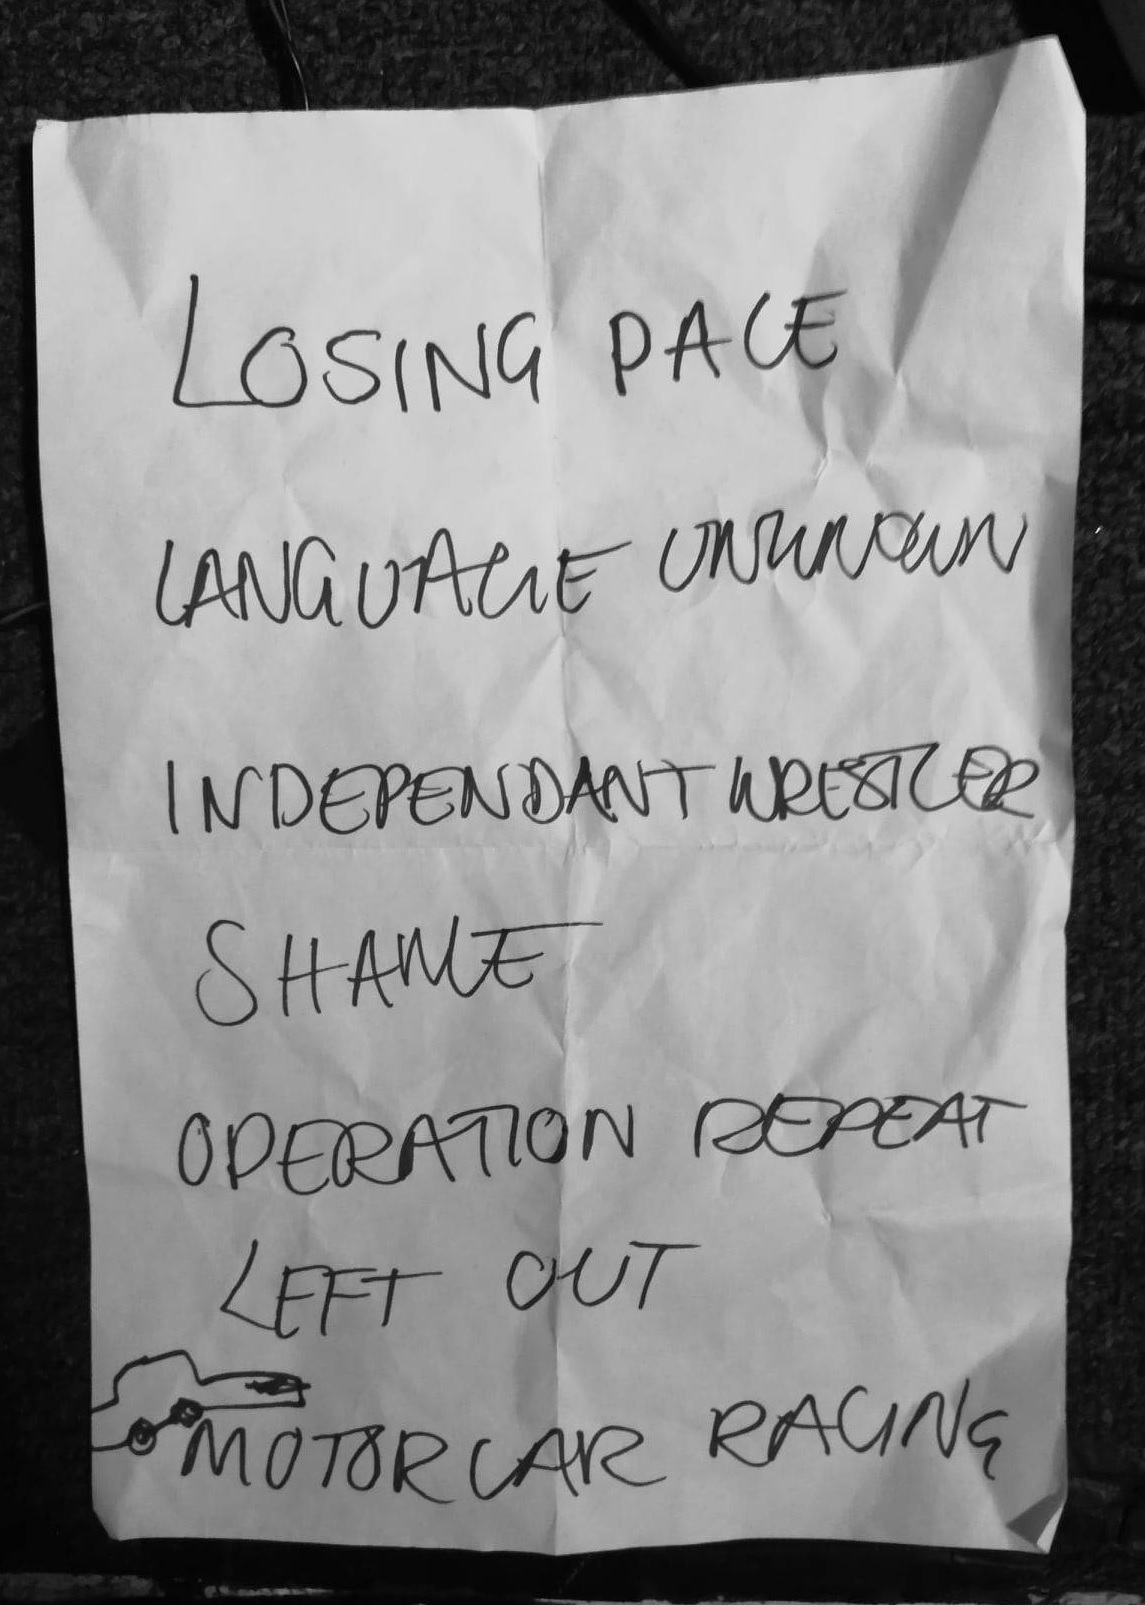 LOSING PACE
LANGUAGE UNKNOWN
INDEPENDANT WRESTLER
SHAME
OPERATION REPEAT
LEFT OUT
MOTORCAR RACING